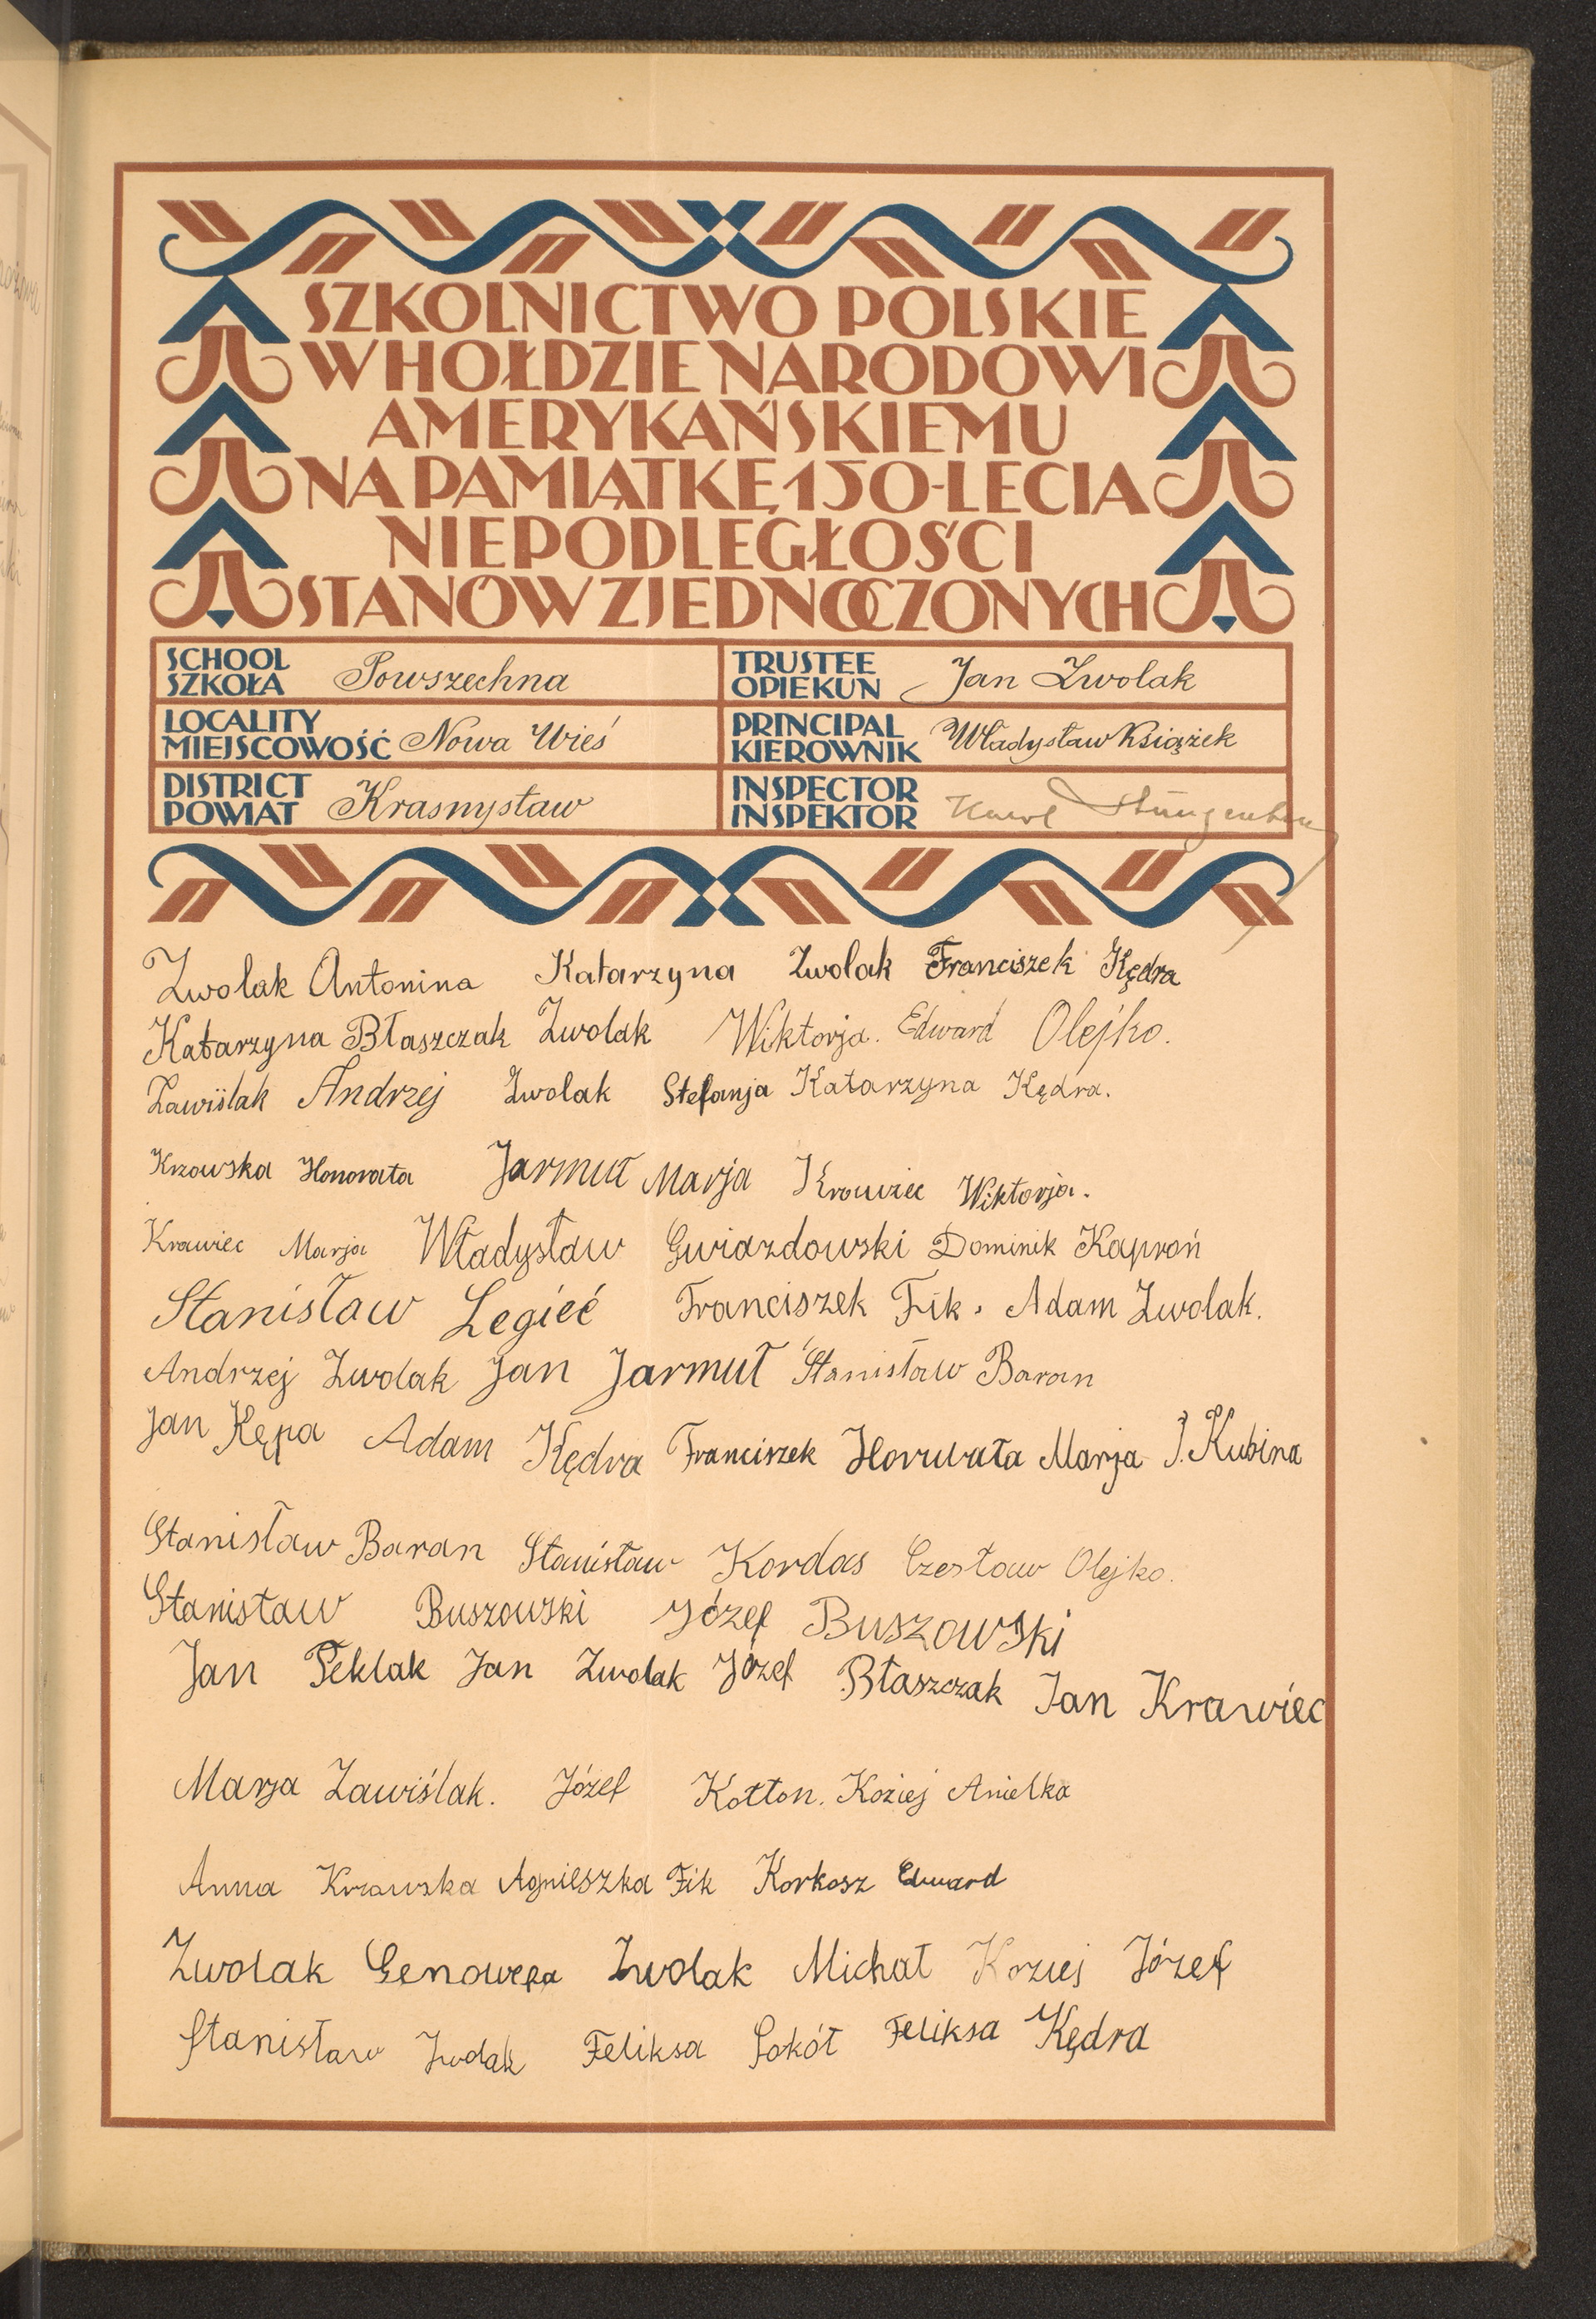 SZKOLNICTWO POLSKIE
W HOŁDZIE NARODOWI
AMERYKAŃSKIEMU
NA PAMIĄTKĘ 150-LECIA
NIEPODLEGŁOŚCI
STANÓW ZJEDNOCZONYCH
SCHOOL
SZKOŁA Powszechna
TRUSTEE
OPIEKUN Jan Zwolak
LOCALITY
MIEJSCOWOŚĆ Nowa Wieś
PRINCIPAL
KIEROWNIK Władysław Książek
DISTRICT
POWIAT Krasnystaw
INSPECTOR
INSPEKTOR
Zwolak Antonina Katarzyna Zwolak Franciszek Kędra
Katarzyna Błaszczak Zwolak Wiktorja. Edward Olejko.
Zawiślak Andrzej Zwolak Stefanja Katarzyna Kędra.
Krzowska Honorata Jarmuł Marja Krawiec Wiktorja.
Krawiec Marja Władysław Gwiazdowski Dominik Kaproń
Stanisław Legieć Franciszek Fik. Adam Zwolak.
Andrzej Zwolak Jan Jarmuł Stanisław Baran
Jan Kępa Adam Kędra Franciszek Marja J. Kubina
Stanisław Baran Stanisław Kordas Czesław Olejko.
Stanisław Buszowski Józef Buszowski
Jan Peklak Jan Zwolak Józef Błaszczak Jan Krawiec
Marja Zawiślak. Józef Kotłon. Koziej Anielka
Anna Krzowska Agnieszka Fik Korkosz Edward
Zwolak Genowefa Zwolak Michał Koziej Józef
Stanisław Zwolak Feliksa Sokół Feliksa Kędra